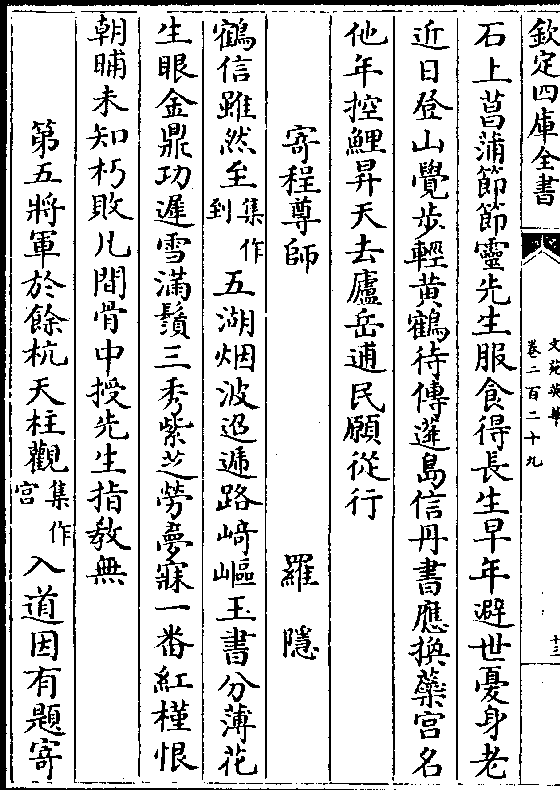 欽定四庫全書
文苑英華
卷二百二十九
十三
石上菖蒲節節靈先生服食得長生早年避世憂身老
近日登山覺步輕黃鶴待傳蓬島信丹書應換蘂宮名
他年控鯉昇天去廬岳逋民願從行
寄程尊師 羅隱
鶴信雖然至集作到五湖烟波迢遞路崎嶇玉書分薄花
生眼金鼎功遲雪滿鬚三秀紫芝勞夢寐一番紅槿恨
朝晡未知朽敗凡間骨中授先生指教無
第五將軍於餘杭天柱觀集作宮入道因有題寄